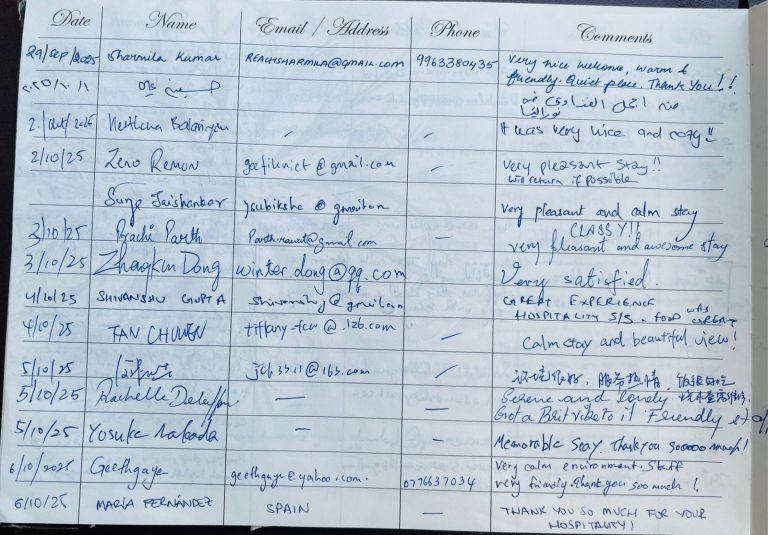 Date Name Email / Address Phone Comments
29/Sep/2025 Sharmila Kumar REACHSHARMILA@GMAIL.COM 9963380435 Very nice welcome, warm &
friendly. Quiet place. Thank You!!
٢٠٢٥/١٠/١ حسين من اجمل الفنادق في
2/Oct/2025 It was very nice and cozy!!
2/10/25 Zeno Remon @gmail.com — Very pleasant stay!!
will return if possible
Jaishankar very pleasant and calm stay
3/10/25 Prachi Parth Parth.rawat@gmail.com — CLASSY!!
very pleasant and awesome stay
3/10/25 Dong winter.dong@qq.com Very satisfied.
4/10/25 SHIVANSHU GUPTA GREAT EXPERIENCE
HOSPITALITY 5/5. FOOD WAS GREAT
4/10/25 TAN Calm stay and beautiful view!
5/10/25 @163.com 环境很好，服务热情，饭很好吃
5/10/25 Rachelle — — Serene and lovely.
Got a Brit vibe to it Friendly
5/10/25 Yosuke — — Memorable Stay. Thank you sooooo much!
6/10/2025 Geethgaye geethgaye@yahoo.com. 0776637034 Very calm environment. Staff
very friendly. Thank you soo much!
6/10/25 MARÍA FERNÁNDEZ SPAIN — THANK YOU SO MUCH FOR YOUR
HOSPITALITY!